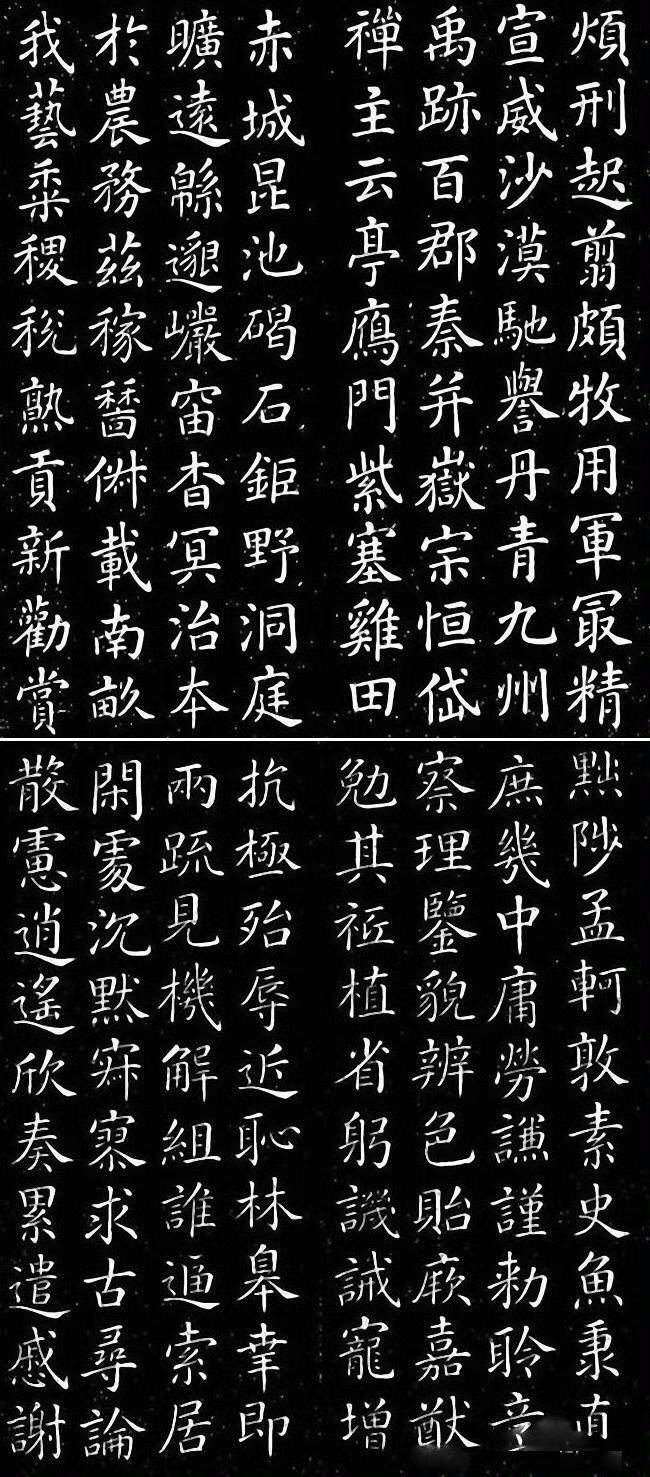 煩刑起翦頗牧用軍最精
宣威沙漠馳譽丹青九州
禹跡百郡秦并嶽宗恒岱
禪主云亭鴈門紫塞雞田
赤城昆池碣石鉅野洞庭
曠遠緜邈巖岫杳冥治本
於農務茲稼穡俶載南畝
我藝黍稷稅熟貢新勸賞
黜陟孟軻敦素史魚秉直
庶幾中庸勞謙謹勑聆音
察理鑒貌辨色貽厥嘉猷
勉其祗植省躬譏誡寵增
抗極殆辱近恥林皋幸即
兩疏見機解組誰逼索居
閑處沉默寂寥求古尋論
散慮逍遙欣奏累遣慼謝